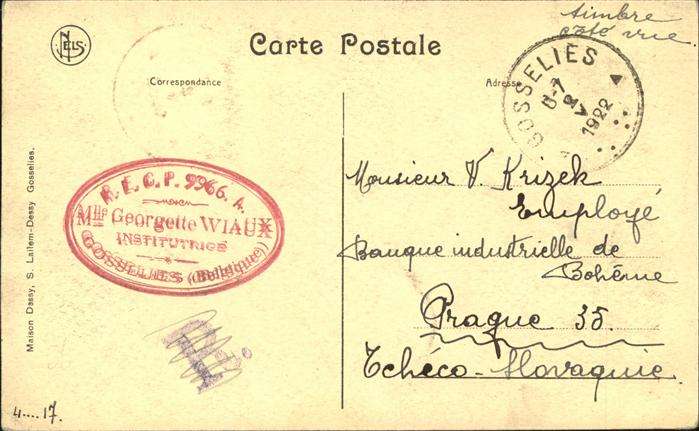 NELS
Carte Postale
timbre
côté vue
Correspondance
Adresse
GOSSELIES
1922
R.E.C.P. 9966. A.
Mlle Georgette WIAUX
INSTITUTRICE
GOSSELIES (Belgique)
Monsieur V. Krizek
Employé
Banque industrielle de
Bohême
Prague 35.
Tchéco-Slovaquie.
Maison Dassy, S. Lallem-Dessy Gosselies.
4....17.